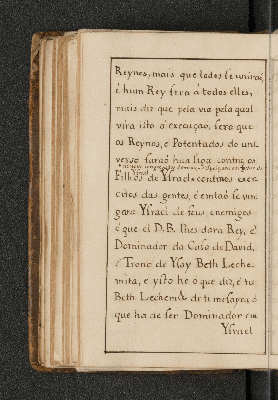 Reynos, mais que todos se uniraõ,
é hum Rey sera á todos elles,
mais diz que pela via pela qual
vira isto á execuçaõ, sera que
os Reynos, e Potentados do uni-
verso faraõ húa liga contra os
Filhos de Ysrael contra os exer-
citos das gentes, é entaõ se vin-
gara Ysrael de seus enemigos
é que el D.B. lhes dara Rey, é
Dominador da Casa de David,
é Tronc de Ysay Beth Leche-
mita, e ysto he o que diz, é tu
Beth Lechem de ti me saira ó
que ha de ser Dominador em
Ysrael